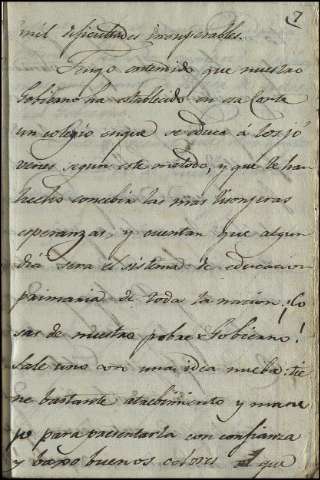 7
mil dificultades insuperables.
Tengo entendido que nuestro
Gobierno ha establecido en esa Corte
un colegio en que se educa á los jó
venes segun este metodo, y que le han
hecho concebir las mas lisonjeras
esperanzas, y cuentan que algun
dia sera el sistema de educacion
primaria de toda la nacion; ¡Co
sas de nuestro pobre Gobierno!
Sale uno con una idea nueba: tie
ne bastante atrebimiento y mane
jo para presentarla con confianza
y baxo buenos colores que